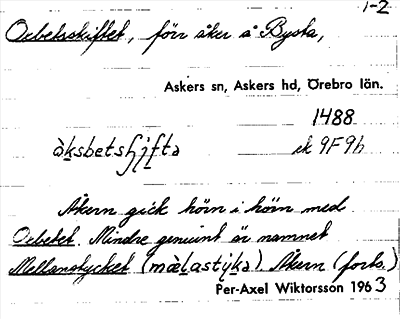 1-2
Oxbetsskiftet, förr åker å Bysta,
Askers sn, Askers hd, Örebro län.
1488
àksbetsʃjfta ek 9F9h
Åkern gick hörn i hörn med
Oxbetet. Mindre genuint är namnet
Mellanstycket (mæ̀lastẏka). Åkern (forts.)
Per-Axel Wiktorsson 1963